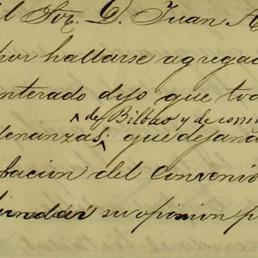 el Sor. D. Juan A
por hallarse agregad
nterado dijo que tod
de Bilbao y de comi
denanzas. que dejand
bacion del Convenio
fundar su opinion p